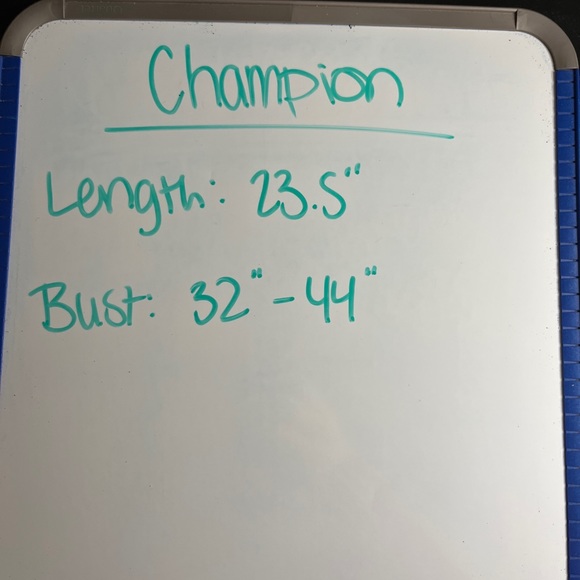 Champion
Length: 23.5"
Bust: 32" - 44"